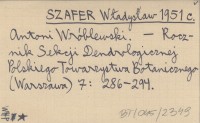 SZAFER Władysław 1951 c.
Antoni Wróblewski. — Rocz-
nik Sekcji Dendrologicznej
Polskiego Towarzystwa Botanicznego
(Warszawa) 7: 286-294.